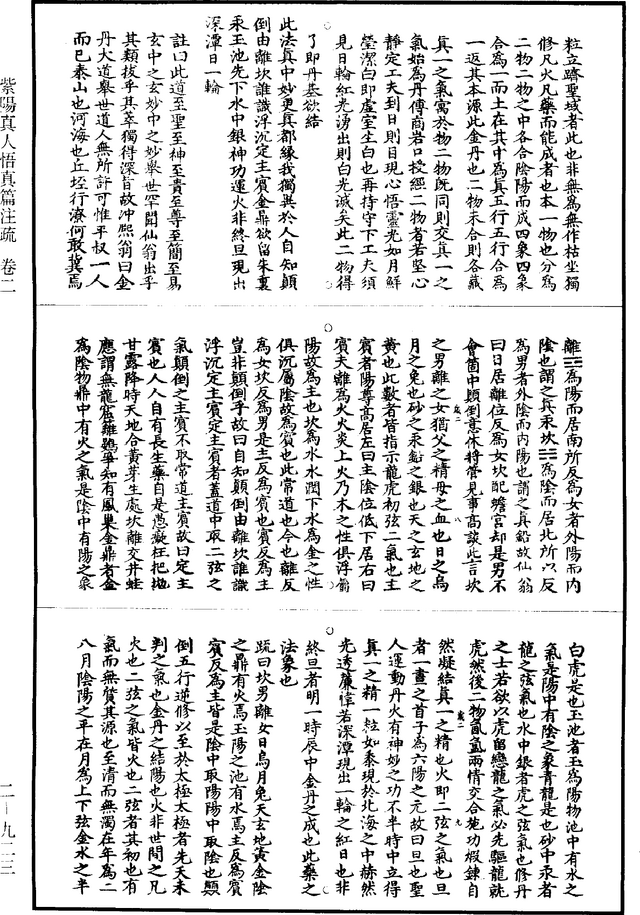 紫陽真人悟真篇注疏　卷二
二—九二三
粒立躋聖域者此也非無為無作枯坐獨
修凡火凡藥而能成者也本一物也分為
二物二物之中各合陰陽而成四象四象
合為一而土在其中為真五行五行合為
一返其本源此金丹也二物未合則各藏
真一之氣寓於物二物既同則交真一之
氣始為丹傳商若口授經二物者若堅心
靜定工夫到日則目現心悟靈光如月鮮
瑩潔白即虛室生白也再持守下工夫須
見日輪紅光湧出則白光滅矣此二物得
了即丹基欲結
此法真中妙更真都緣我獨異於人自知顛
倒由離坎誰識浮沉定主賓金鼎欲留朱裏
汞玉池先下水中銀神功運火非終旦現出
深潭日一輪
註曰此道至聖至神至貴至尊至簡至易
玄中之玄妙中之妙舉世罕聞仙翁出乎
其類拔乎其萃獨得深旨故冲熙翁曰金
丹大道舉世道人無所許可惟平叔一人
而已泰山也河海也丘垤行潦何敢冀焉
離☲為陽而居南所反為女者外陽而內
陰也謂之真汞坎☵為陰而居北所以反
為男者外陰而內陽也謂之真鉛故仙翁
曰日居離位反為女坎配蟾宮却是男不
會箇中顛倒意休將管見事高談此言坎
之男離之女猶父之精母之血也日之烏
月之兔也砂之汞鉛之銀也天之玄地之
黃也此數者皆指示龍虎初弦二氣也主
賓者陽尊高居左曰主陰位低下居右曰
賓夫離為火火炎上火乃木之性俱浮屬
陽故為主也坎為水水潤下水為金之性
俱沉屬陰故為賓也此常道也今也離反
為女坎反為男是主反為賓也賓反為主
豈非顛倒乎故曰自知顛倒由離坎誰識
浮沉定主賓定主賓者蓋道中取二弦之
氣顛倒之主賓不取常道主賓故曰定主
賓也人人自有長生藥自是愚癡枉把拋
甘露降時天地合黃芽生處坎離交井蛙
應謂無龍窟籬鷃爭知有鳳巢金鼎者金
為陰物鼎中有火之氣是陰中有陽之象
白虎是也玉池者玉為陽物池中有水之
氣是陽中有陰之象青龍是也砂中汞者
龍之弦氣也水中銀者虎之弦氣也修丹
之士若欲以虎留戀龍之氣必先驅龍就
虎然後二物氤氳兩情交合施功煆鍊自
然凝結真一之精也火即二弦之氣也旦
者一晝之首子為六陽之元故曰旦也聖
人運動丹火有神妙之功不半時中立得
真一之精一粒如黍現於北海之中赫然
光透簾幃若深潭現出一輪之紅日也非
終旦者明一時辰中金丹之成也此藥之
法象也
疏曰坎男離女日烏月兔天玄地黃金陰
之鼎有火焉玉陽之池有水焉主反為賓
賓反為主皆是陰中取陽陽中取陰也顛
倒五行逆修以至於太極太極者先天未
判之氣也金丹之結陽也火非世間之凡
火也二弦之氣皆火也二弦者其初也有
氣而無質其源也至清而無濁在年為二
八月陰陽之平在月為上下弦金水之半